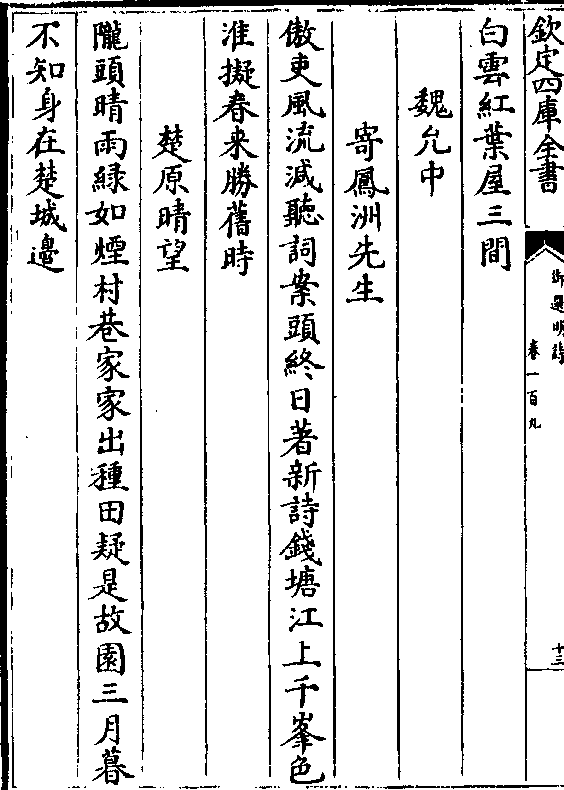 欽定四庫全書
御選明詩
卷一百九
十三
白雲紅葉屋三間
魏允中
寄鳳洲先生
傲吏風流減聽詞案頭終日著新詩錢塘江上千峯色
准擬春来勝舊時
楚原晴望
隴頭晴雨緑如煙村巷家家出種田疑是故園三月暮
不知身在楚城邊